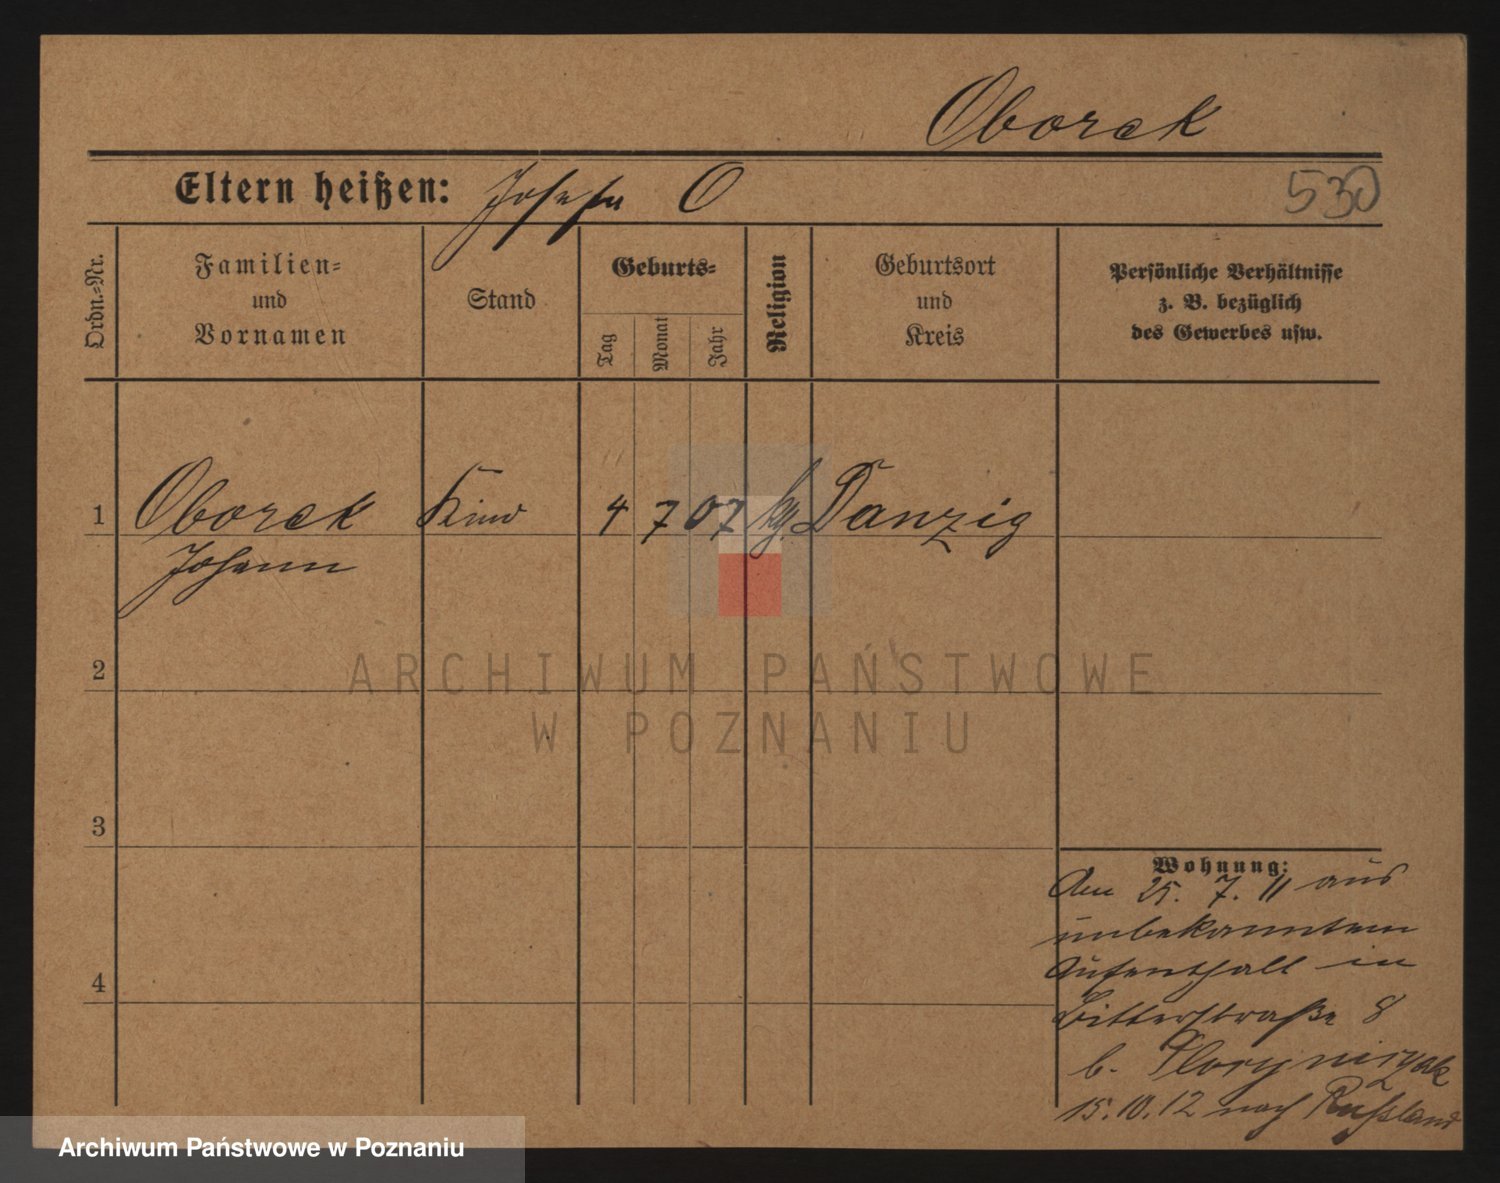 Oborek
Eltern heißen: Josefa O
530
Ordn.-Nr.
Familien-
und
Vornamen
Stand
Geburts-
Tag
Monat
Jahr
Religion
Geburtsort
und
Kreis
Persönliche Verhältnisse
z. B. bezüglich
des Gewerbes usw.
1 Oborek Kind 4 7 07 kg. Danzig
Johann
2
3
4
Wohnung:
Am 25. 7. 11 aus
unbekanntem
Aufenthalt in
Bitterstraße 8
b.
15.10.12 nach Russland
ARCHIWUM PAŃSTWOWE
W POZNANIU
Archiwum Państwowe w Poznaniu